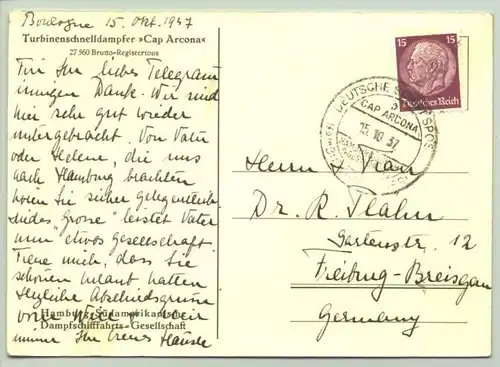 Boulogne 15. Okt. 1937
Turbinenschnelldampfer »Cap Arcona«
27 560 Brutto-Registertons
Für Ihr liebes Telegramm
innigen Dank. Wir sind
hier sehr gut wieder
untergebracht. Von Vater
und Helene, die uns
nach Hamburg brachten
hören Sie sicher
"Grosse" leistet Vater
nun etwas Gesellschaft.
Freue mich, dass Sie
schönen Urlaub hatten
Herzliche Abschiedsgrüsse
Hamburg-Südamerikanische
Dampfschifffahrts-Gesellschaft
immer Ihr treues
15
15
Deutsches Reich
DEUTSCHE
CAP ARCONA
15.10.37
HAMBURG
Herrn u. Frau
Dr. R. Flahn
Gartenstr. 12
Freiburg-Breisgau
Germany